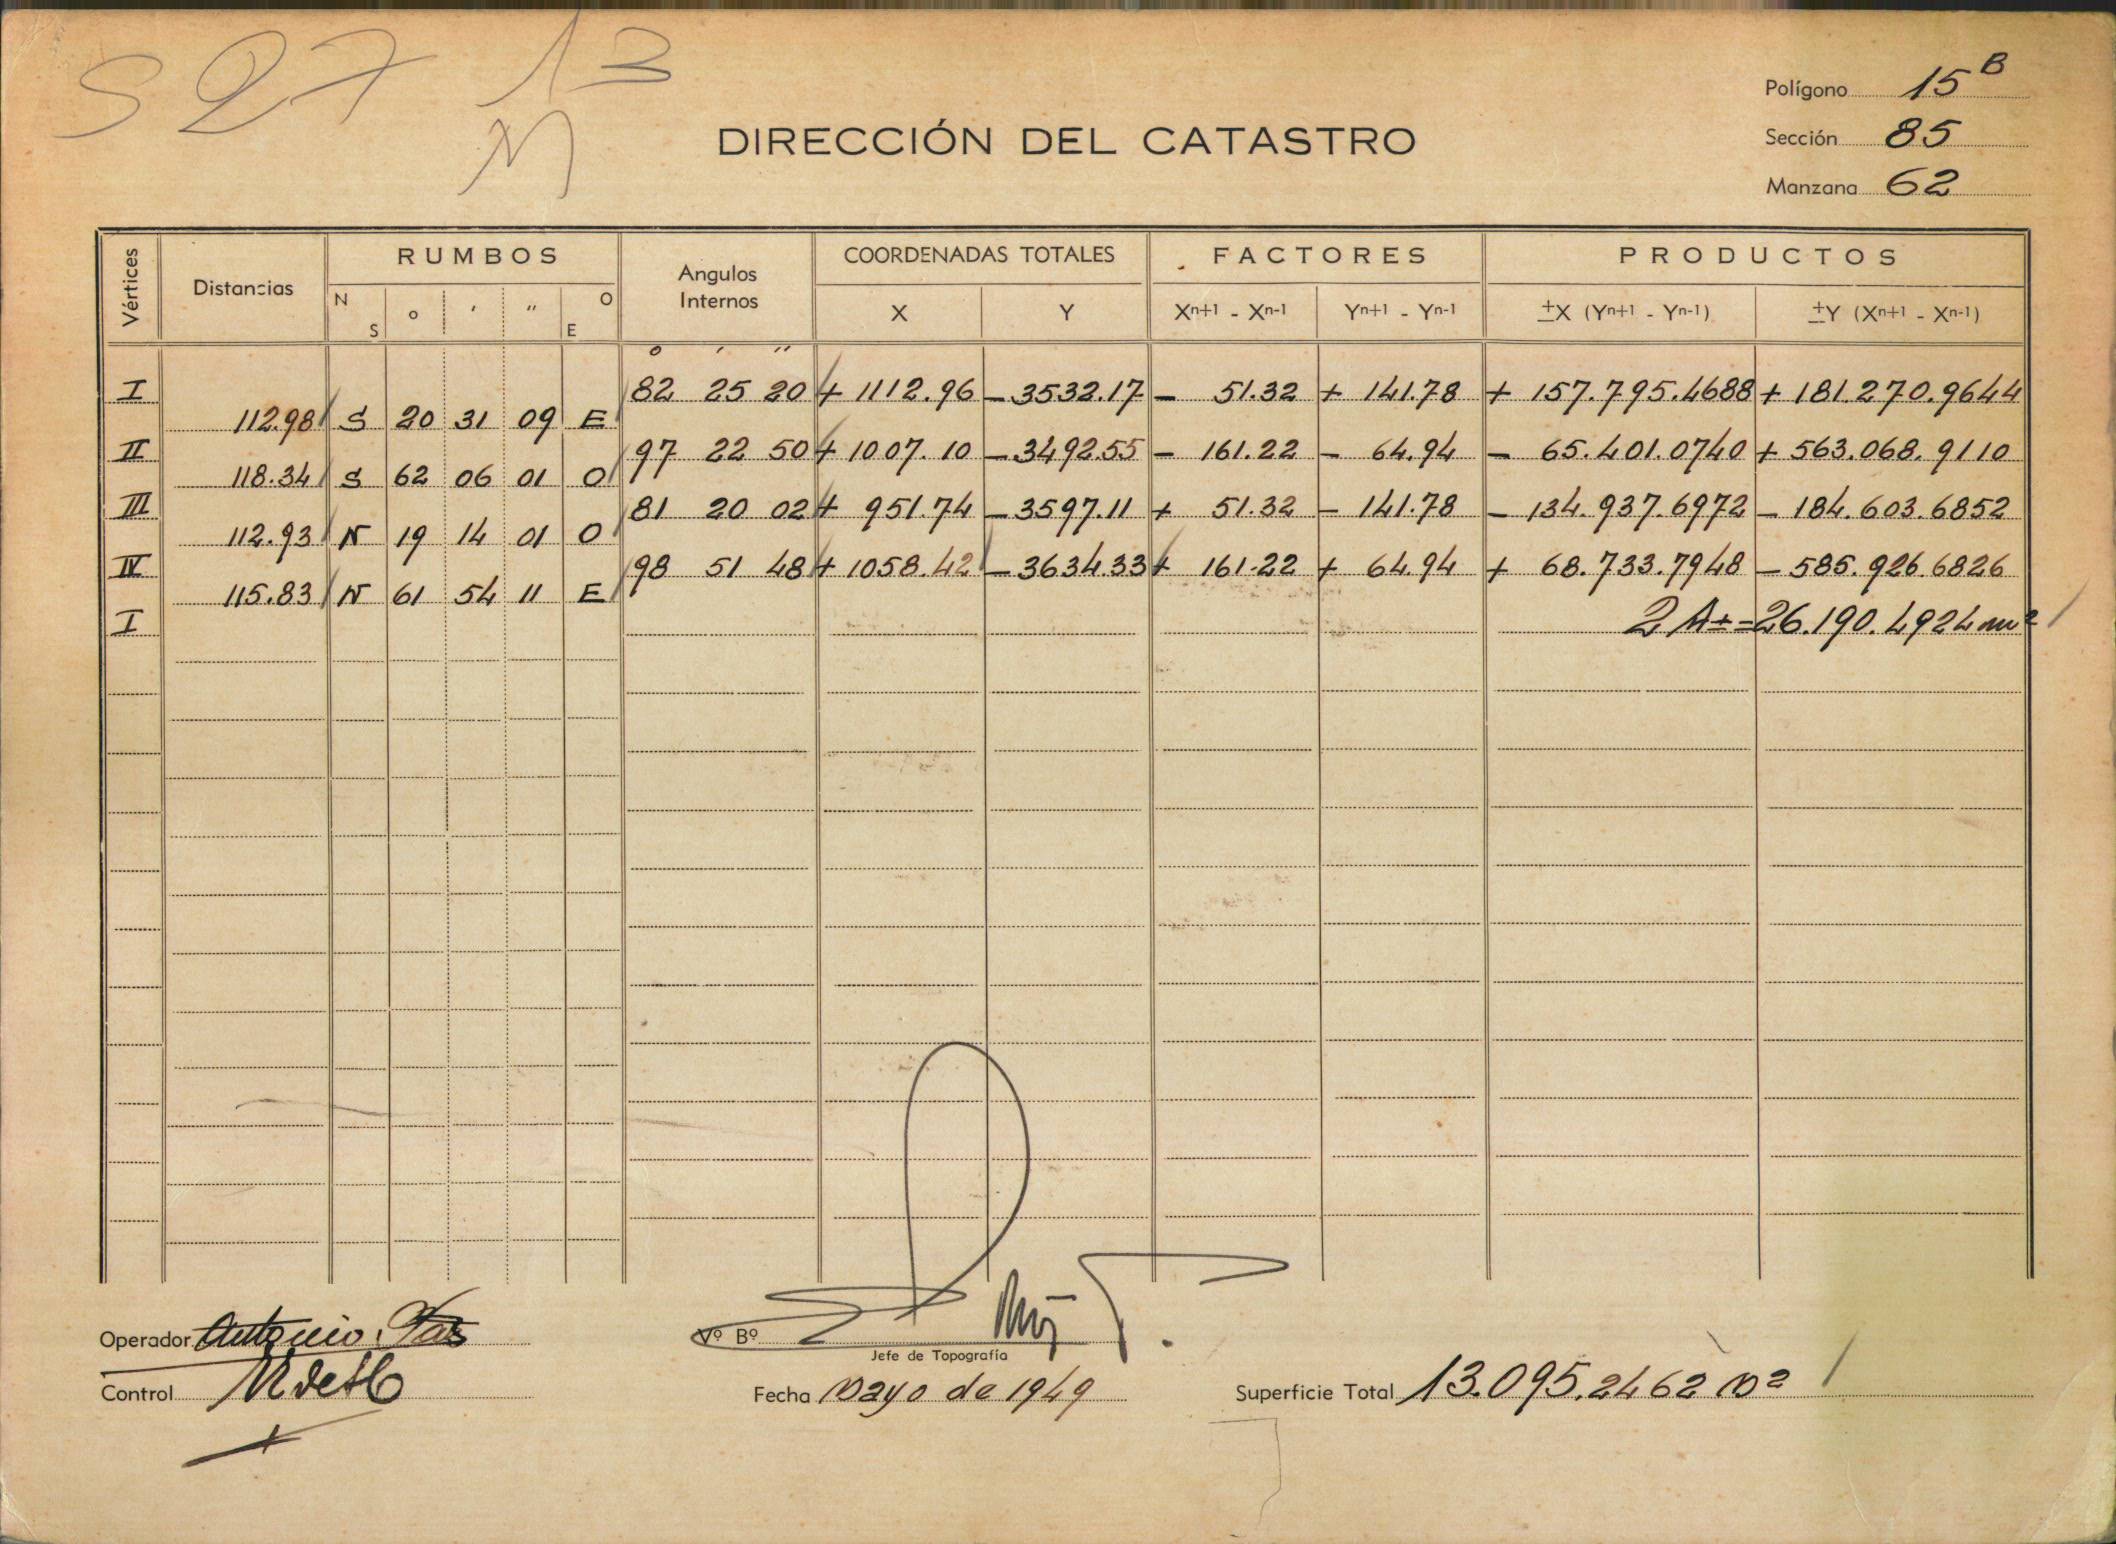 S 27 13
M
Polígono 15 B
DIRECCIÓN DEL CATASTRO
Sección 85
Manzana 62
Vértices Distancias RUMBOS Angulos Internos COORDENADAS TOTALES FACTORES PRODUCTOS
N S o ′ ″ O E X Y Xn+1 - Xn-1 Yn+1 - Yn-1 ±X (Yn+1 - Yn-1) ±Y (Xn+1 - Xn-1)
o ′ ″
I 82 25 20 + 1112.96 - 3532.17 - 51.32 + 141.78 + 157.795.4688 + 181.270.9644
112.98 S 20 31 09 E
II 97 22 50 + 1007.10 - 3492.55 - 161.22 - 64.94 - 65.401.0740 + 563.068.9110
118.34 S 62 06 01 O
III 81 20 02 + 951.74 - 3597.11 + 51.32 - 141.78 - 134.937.6972 - 184.603.6852
112.93 N 19 14 01 O
IV 98 51 48 + 1058.42 - 3634.33 + 161.22 + 64.94 + 68.733.7948 - 585.926.6826
115.83 N 61 54 11 E
I 2A±=26.190.4924 m²
Operador Antonio
Vº Bº
Jefe de Topografía
Control
Fecha Mayo de 1949
Superficie Total 13.095.2462 m²